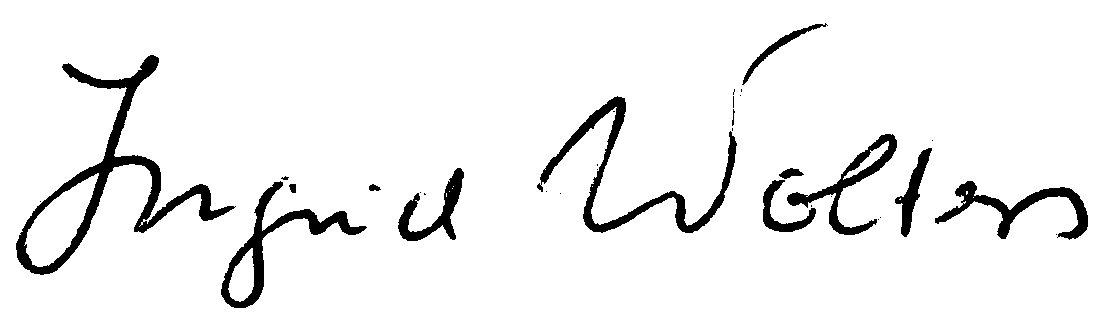 Ingrid Wolters